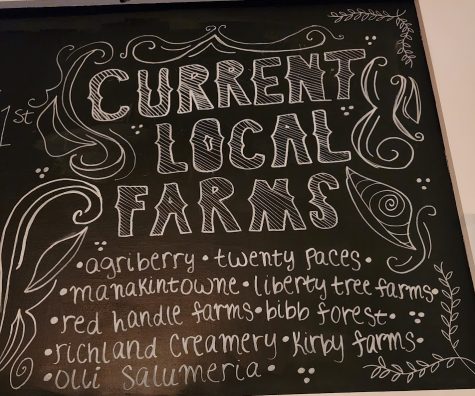 1st
CURRENT
LOCAL
FARMS
•agriberry •twenty paces•
•manakintowne •liberty tree farms•
•red handle farms •bibb forest•
•richland creamery •Kirby farms•
•olli Salumeria•